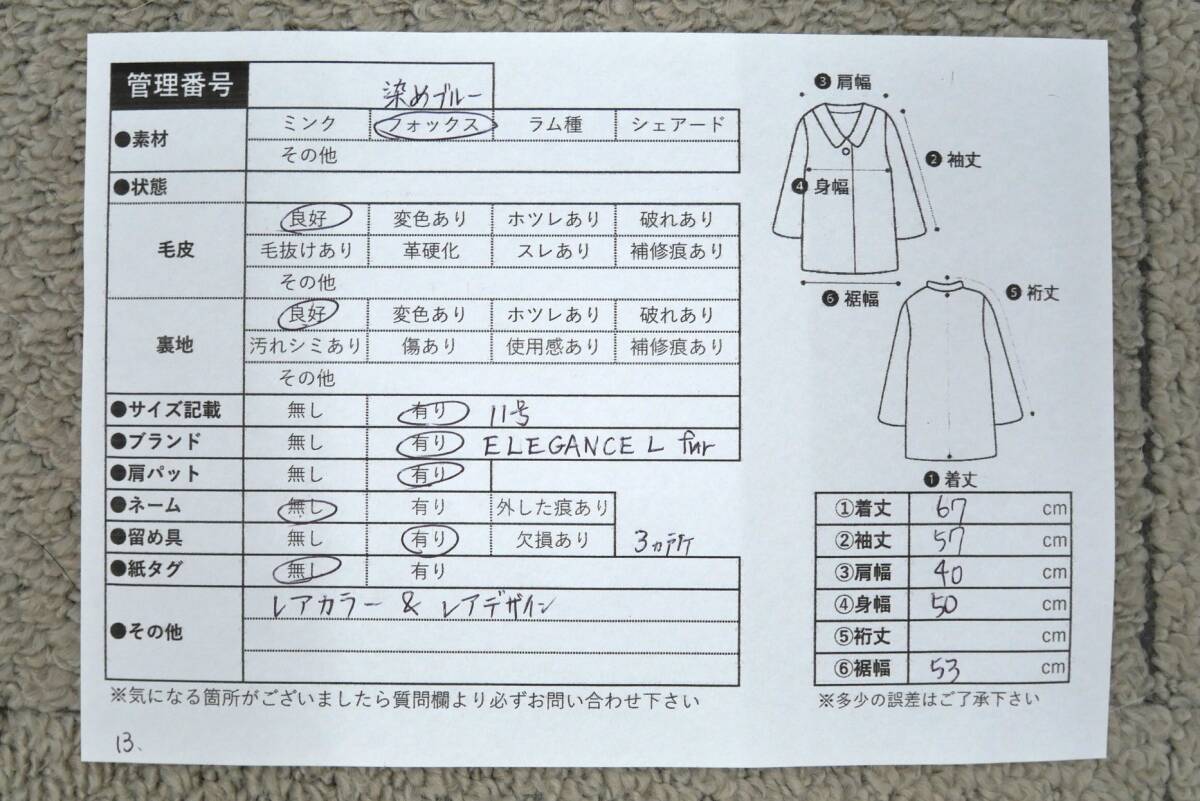 管理番号
染めブルー
●素材 ミンク フォックス ラム種 シェアード
その他
●状態
毛皮 良好 変色あり ホツレあり 破れあり
毛抜けあり 革硬化 スレあり 補修痕あり
その他
裏地 良好 変色あり ホツレあり 破れあり
汚れシミあり 傷あり 使用感あり 補修痕あり
その他
●サイズ記載 無し 有り 11号
●ブランド 無し 有り ELEGANCE L fur
●肩パット 無し 有り
●ネーム 無し 有り 外した痕あり
●留め具 無し 有り 欠損あり 3ヵ所
●紙タグ 無し 有り
●その他 レアカラー & レアデザイン
※気になる箇所がございましたら質問欄より必ずお問い合わせ下さい
13、
❸肩幅
❷袖丈
❹身幅
❻裄幅
❺裄丈
❶着丈
①着丈 67 cm
②袖丈 57 cm
③肩幅 40 cm
④身幅 50 cm
⑤裄丈 cm
⑥裾幅 53 cm
※多少の誤差はご了承下さい